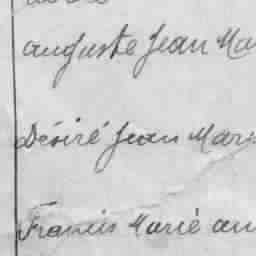 auguste Jean Ma
Désiré Jean Mari
Francis Marie an